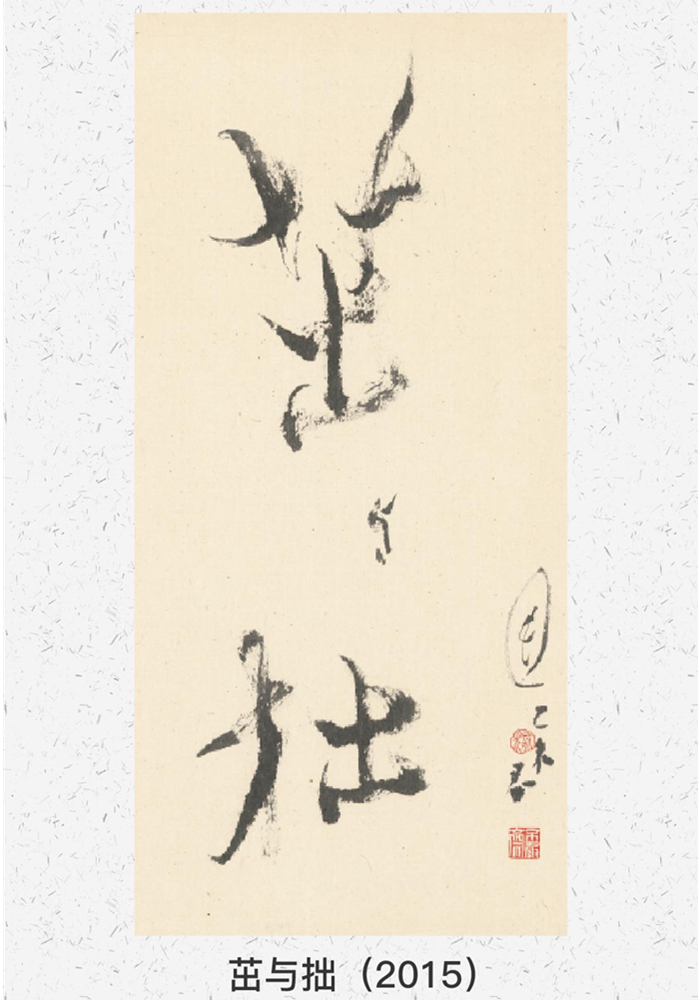 茁与拙
乙未
茁与拙（2015）